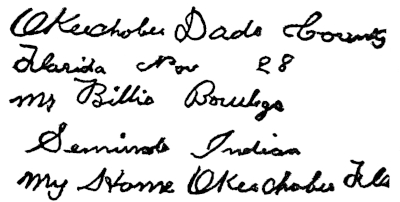 Okeechobee Dade County
Florida Nov 28
Mr Billie Bowlegs
Seminole Indian
My Home Okeechobee Fla